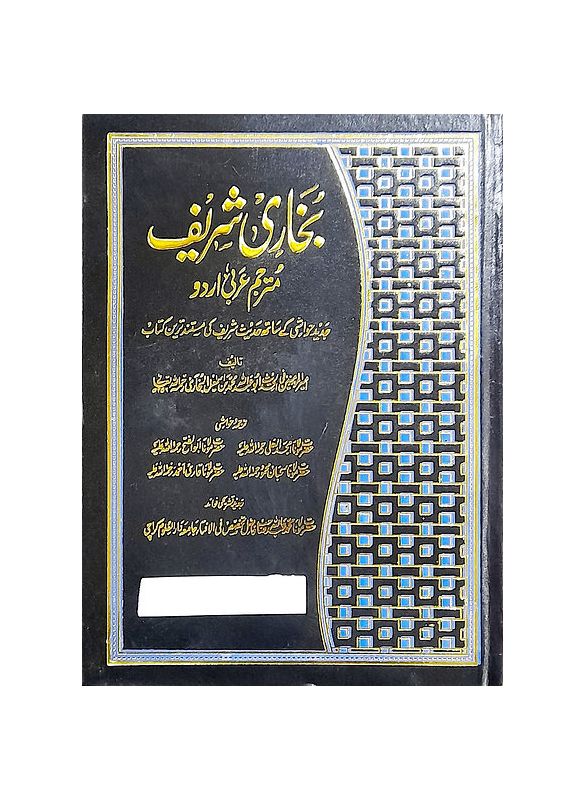 بخاری شریف
مترجم عربی اردو
جدید حواشی کے ساتھ حدیث شریف کی مستند ترین کتاب
تالیف
امیر المومنین فی الحدیث ابو عبداللہ محمد بن اسمٰعیل البخاری رحمۃ اللہ علیہ
ترجمہ حواشی
حضرت مولانا رحمۃ اللہ علیہ حضرت مولانا ابو الفتح رحمۃ اللہ علیہ
حضرت مولانا سبحان محمود رحمۃ اللہ علیہ حضرت مولانا قاری احمد رحمۃ اللہ علیہ
فوائد
حضرت مولانا محمد عبداللہ فاضل تخصص فی الافتاء جامعہ دار العلوم کراچی